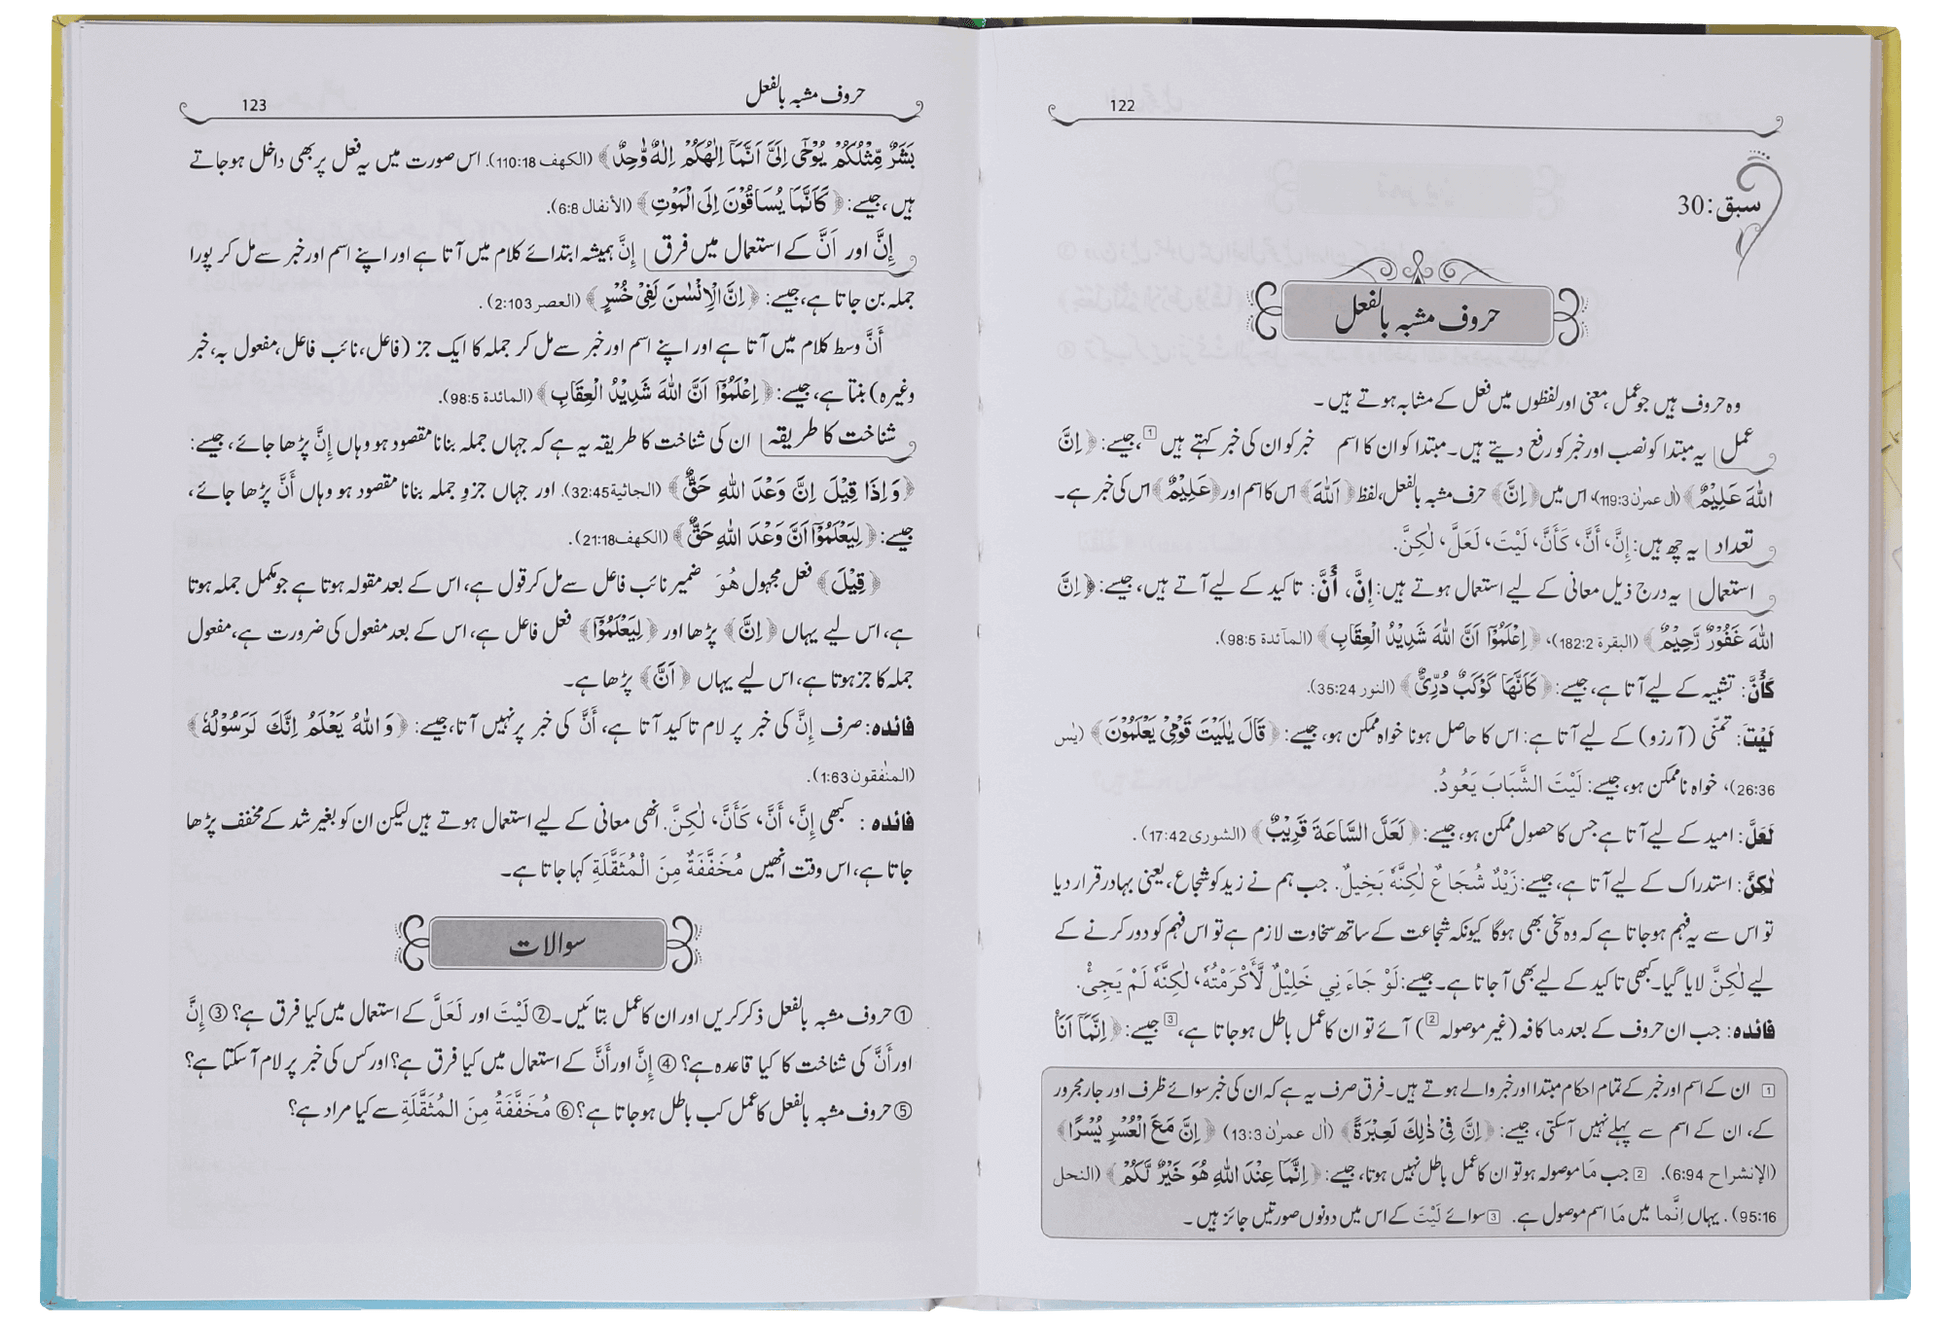 122
سبق:30
حروف مشبہ بالفعل
وہ حروف ہیں جو عمل، معنی اور لفظوں میں فعل کے مشابہ ہوتے ہیں۔
عمل یہ مبتدا کو نصب اور خبر کو رفع دیتے ہیں۔ مبتدا کو ان کا اسم خبر کو ان کی خبر کہتے ہیں [1]، جیسے: ﴿اِنَّ
اللّٰهَ عَلِيْمٌ﴾ (اٰل عمرٰن 119:3)، اس میں ﴿اِنَّ﴾ حرف مشبہ بالفعل، لفظ ﴿اَللّٰهَ﴾ اس کا اسم اور ﴿عَلِيْمٌ﴾ اس کی خبر ہے۔
تعداد یہ چھ ہیں: إِنَّ، أَنَّ، كَأَنَّ، لَيْتَ، لَعَلَّ، لٰكِنَّ.
استعمال یہ درج ذیل معانی کے لیے استعمال ہوتے ہیں: إِنَّ، أَنَّ: تاکید کے لیے آتے ہیں، جیسے: ﴿اِنَّ
اللّٰهَ غَفُوْرٌ رَّحِيْمٌ﴾ (البقرة 182:2)، ﴿اِعْلَمُوْٓا اَنَّ اللّٰهَ شَدِيْدُ الْعِقَابِ﴾ (المآئدة 98:5).
كَأَنَّ: تشبیہ کے لیے آتا ہے، جیسے: ﴿كَاَنَّهَا كَوْكَبٌ دُرِّيٌّ﴾ (النور 35:24).
لَيْتَ: تمنّی (آرزو) کے لیے آتا ہے: اس کا حاصل ہونا خواہ ممکن ہو، جیسے: ﴿قَالَ يٰلَيْتَ قَوْمِيْ يَعْلَمُوْنَ﴾ (يٰس
26:36)، خواہ ناممکن ہو، جیسے: لَيْتَ الشَّبَابَ يَعُودُ.
لَعَلَّ: امید کے لیے آتا ہے جس کا حصول ممکن ہو، جیسے: ﴿لَعَلَّ السَّاعَةَ قَرِيْبٌ﴾ (الشورى 17:42).
لٰكِنَّ: استدراک کے لیے آتا ہے، جیسے: زَيْدٌ شُجَاعٌ لٰكِنَّهٗ بَخِيلٌ. جب ہم نے زید کو شجاع، یعنی بہادر قرار دیا
تو اس سے یہ فہم ہو جاتا ہے کہ وہ سخی بھی ہوگا کیونکہ شجاعت کے ساتھ سخاوت لازم ہے تو اس فہم کو دور کرنے کے
لیے لٰكِنَّ لایا گیا۔ کبھی تاکید کے لیے بھی آجاتا ہے۔ جیسے: لَوْ جَاءَنِي خَلِيْلٌ لَّأَكْرَمْتُهٗ، لٰكِنَّهٗ لَمْ يَجِئْ.
فائدہ: جب ان حروف کے بعد ما کافہ (غیر موصولہ [2]) آئے تو ان کا عمل باطل ہو جاتا ہے، [3] جیسے: ﴿اِنَّمَآ اَنَا۠
[1] ان کے اسم اور خبر کے تمام احکام مبتدا اور خبر والے ہوتے ہیں۔ فرق صرف یہ ہے کہ ان کی خبر سوائے ظرف اور جار مجرور
کے، ان کے اسم سے پہلے نہیں آسکتی، جیسے: ﴿اِنَّ فِيْ ذٰلِكَ لَعِبْرَةً﴾ (اٰل عمرٰن 13:3) ﴿اِنَّ مَعَ الْعُسْرِ يُسْرًا﴾
(الإنشراح 6:94). [2] جب مَا موصولہ ہو تو ان کا عمل باطل نہیں ہوتا، جیسے: ﴿اِنَّمَا عِنْدَ اللّٰهِ هُوَ خَيْرٌ لَّكُمْ﴾ (النحل
95:16). یہاں اِنَّما میں مَا اسم موصول ہے. [3] سوائے لَيْتَ کے اس میں دونوں صورتیں جائز ہیں۔
حروف مشبہ بالفعل
123
بَشَرٌ مِّثْلُكُمْ يُوْحٰٓى اِلَيَّ اَنَّمَآ اِلٰهُكُمْ اِلٰهٌ وَّاحِدٌ﴾ (الكهف 110:18). اس صورت میں یہ فعل پر بھی داخل ہو جاتے
ہیں، جیسے: ﴿كَاَنَّمَا يُسَاقُوْنَ اِلَى الْمَوْتِ﴾ (الأنفال 6:8).
إِنَّ اور اَنَّ کے استعمال میں فرق إِنَّ ہمیشہ ابتدائے کلام میں آتا ہے اور اپنے اسم اور خبر سے مل کر پورا
جملہ بن جاتا ہے، جیسے: ﴿اِنَّ الْاِنْسٰنَ لَفِيْ خُسْرٍ﴾ (العصر 2:103).
أَنَّ وسط کلام میں آتا ہے اور اپنے اسم اور خبر سے مل کر جملہ کا ایک جز (فاعل، نائب فاعل، مفعول بہ، خبر
وغیرہ) بنتا ہے، جیسے: ﴿اِعْلَمُوْٓا اَنَّ اللّٰهَ شَدِيْدُ الْعِقَابِ﴾ (المائدة 98:5).
شناخت کا طریقہ ان کی شناخت کا طریقہ یہ ہے کہ جہاں جملہ بنانا مقصود ہو وہاں إِنَّ پڑھا جائے، جیسے:
﴿وَ اِذَا قِيْلَ اِنَّ وَعْدَ اللّٰهِ حَقٌّ﴾ (الجاثية 32:45). اور جہاں جزوِ جملہ بنانا مقصود ہو وہاں أَنَّ پڑھا جائے،
جیسے: ﴿لِيَعْلَمُوْٓا اَنَّ وَعْدَ اللّٰهِ حَقٌّ﴾ (الكهف 21:18).
﴿قِيْلَ﴾ فعل مجہول هُوَ ضمیر نائب فاعل سے مل کر قول ہے، اس کے بعد مقولہ ہوتا ہے جو مکمل جملہ ہوتا
ہے، اس لیے یہاں ﴿اِنَّ﴾ پڑھا اور ﴿لِيَعْلَمُوْٓا﴾ فعل فاعل ہے، اس کے بعد مفعول کی ضرورت ہے، مفعول
جملہ کا جز ہوتا ہے، اس لیے یہاں ﴿اَنَّ﴾ پڑھا ہے۔
فائدہ: صرف إِنَّ کی خبر پر لام تاکید آتا ہے، أَنَّ کی خبر پر نہیں آتا، جیسے: ﴿وَ اللّٰهُ يَعْلَمُ اِنَّكَ لَرَسُوْلُهٗ﴾
(المنٰفقون 1:63).
فائدہ: کبھی إِنَّ، أَنَّ، كَأَنَّ، لٰكِنَّ. انھی معانی کے لیے استعمال ہوتے ہیں لیکن ان کو بغیر شد کے مخفف پڑھا
جاتا ہے، اس وقت انھیں مُخَفَّفَةٌ مِنَ الْمُثَقَّلَةِ کہا جاتا ہے۔
سوالات
① حروف مشبہ بالفعل ذکر کریں اور ان کا عمل بتائیں۔ ② لَيْتَ اور لَعَلَّ کے استعمال میں کیا فرق ہے؟ ③ إِنَّ
اور أَنَّ کی شناخت کا کیا قاعدہ ہے؟ ④ إِنَّ اور أَنَّ کے استعمال میں کیا فرق ہے؟ اور کس کی خبر پر لام آسکتا ہے؟
⑤ حروف مشبہ بالفعل کا عمل کب باطل ہو جاتا ہے؟ ⑥ مُخَفَّفَةُ مِنَ المُثَقَّلَةِ سے کیا مراد ہے؟